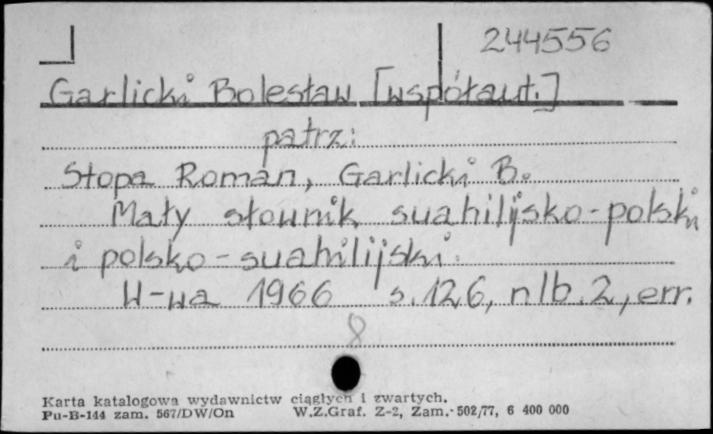 244556
Garlicki Bolesław [współaut.]
patrz:
Stopa Roman, Garlicki B.
Mały słownik suahilijsko-polski
i polsko-suahilijski.
W-wa 1966 s. 126, nlb. 2, err.
8
Karta katalogowa wydawnictw ciągłych i zwartych.
Pu-B-144 zam. 567/DW/On W.Z.Graf. Z-2, Zam. 502/77, 6 400 000